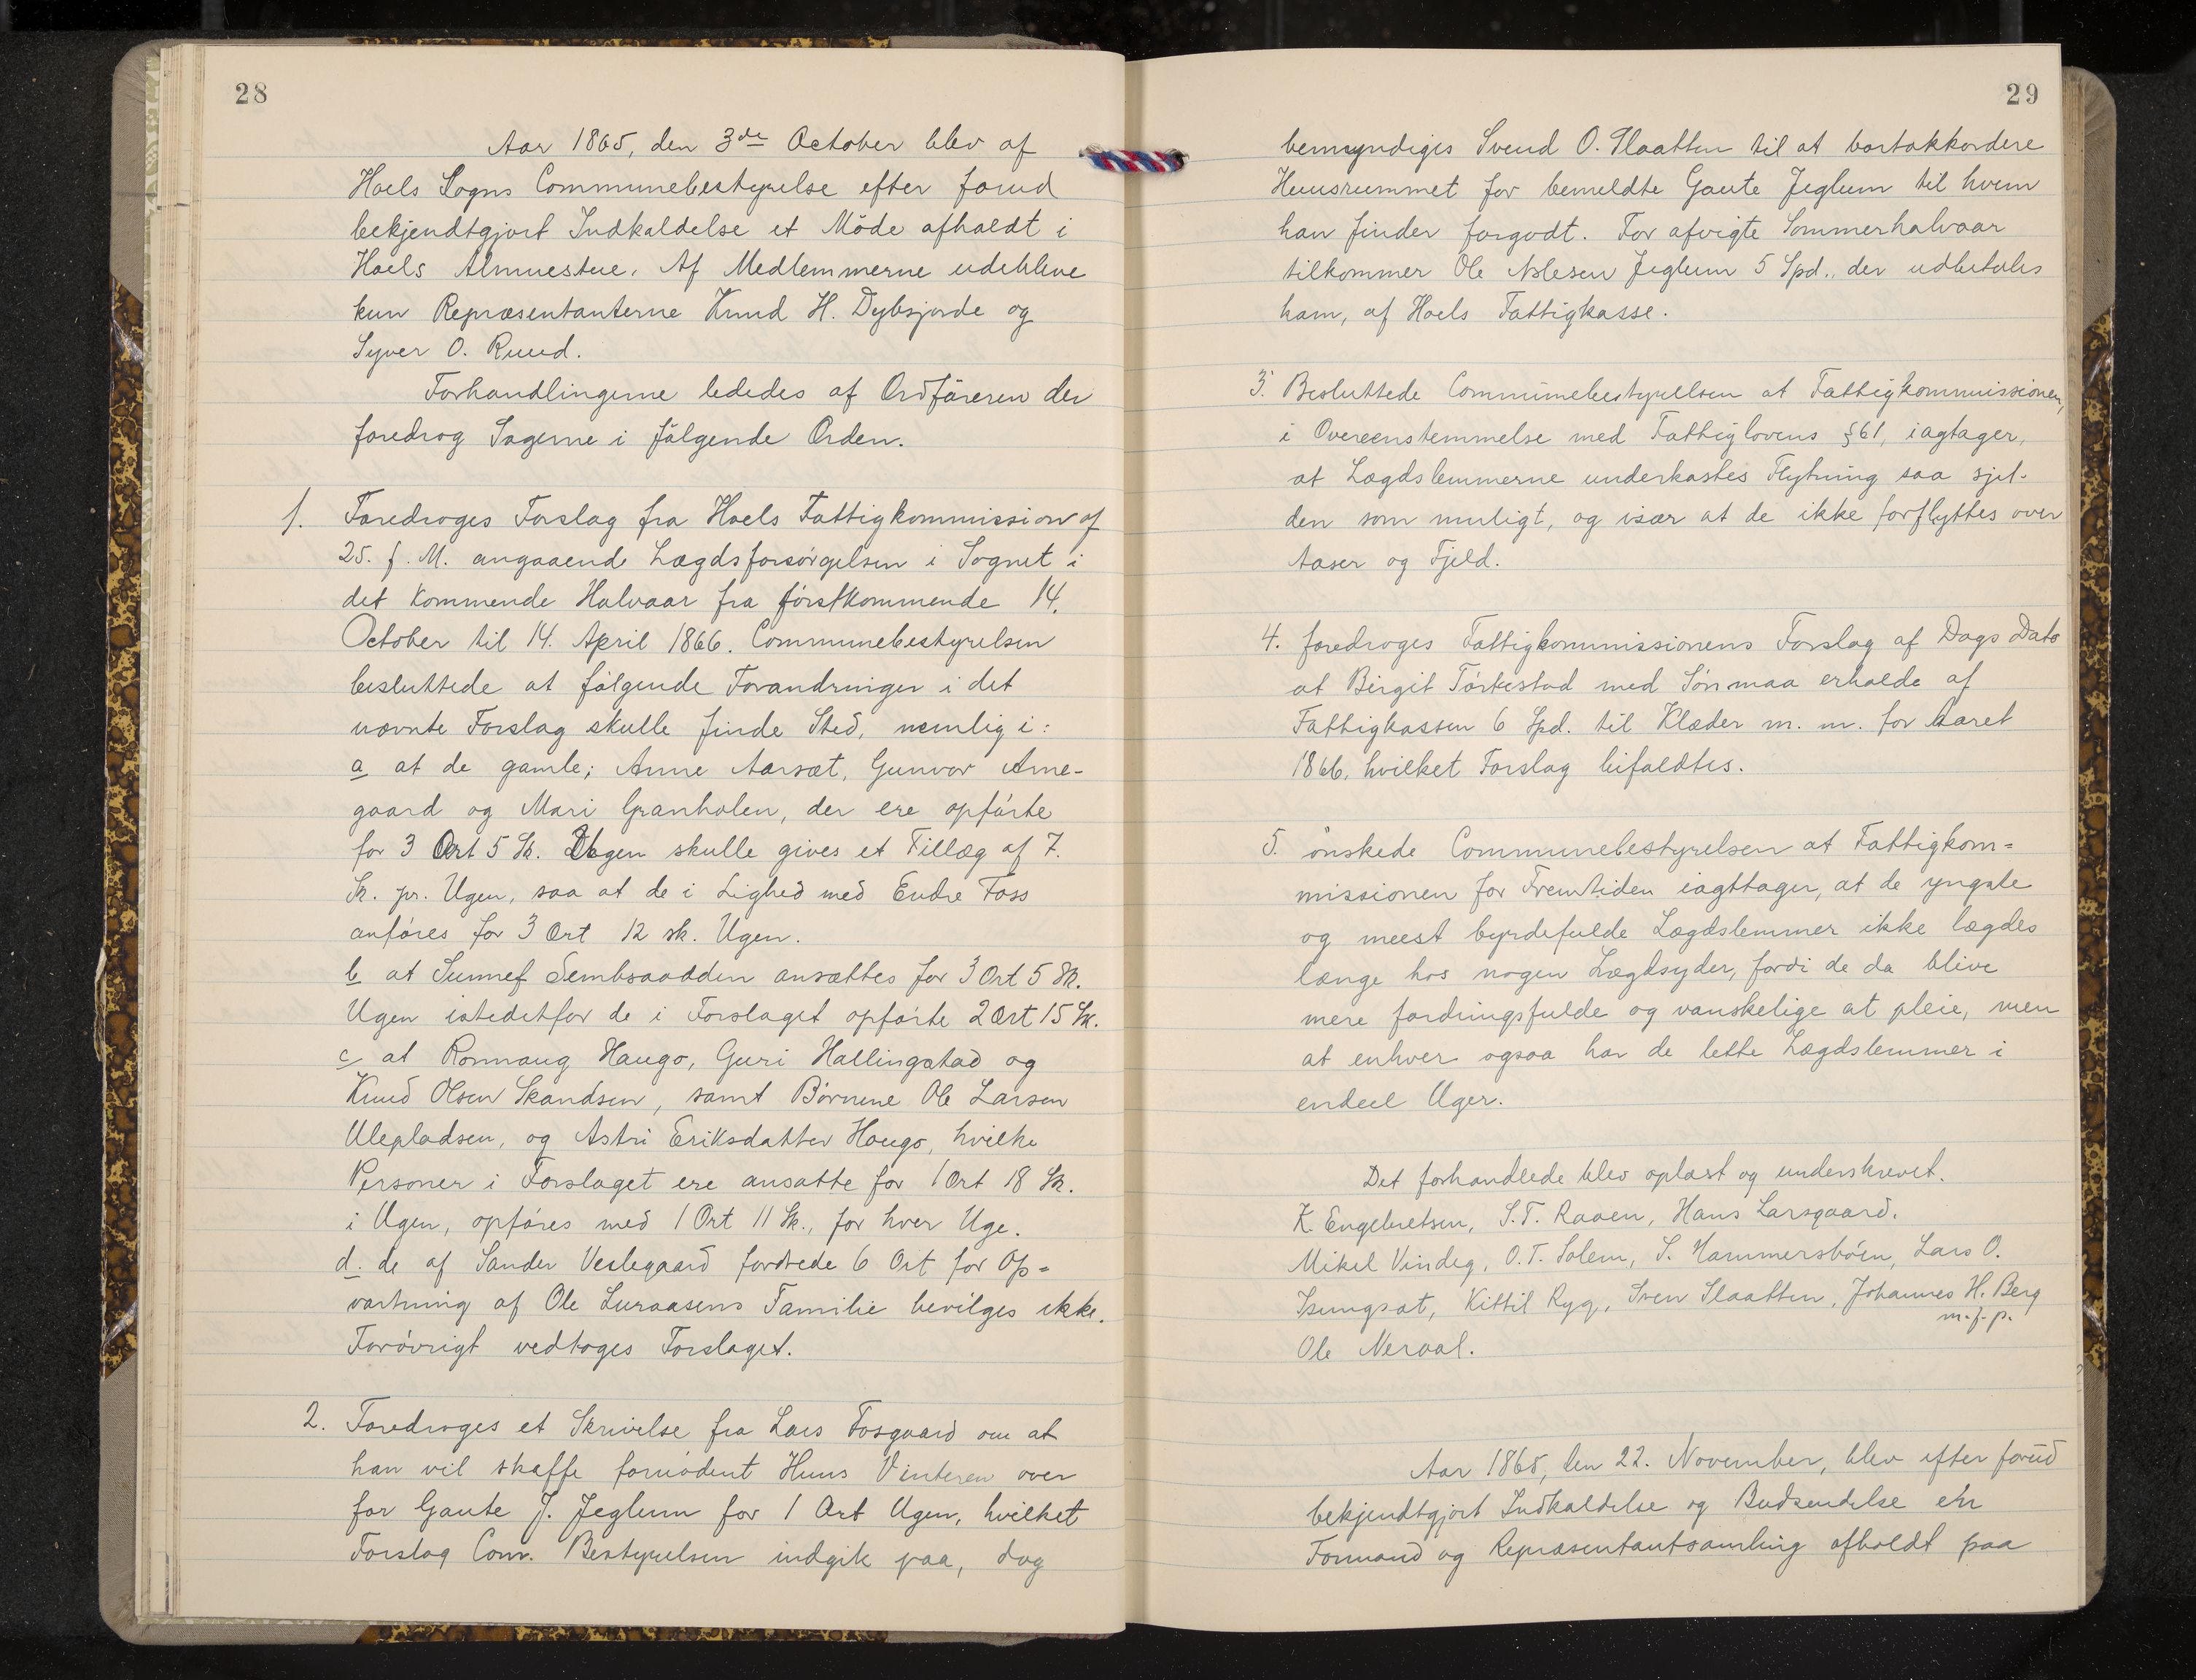 28
Aar 1865, den 3de October blev af
Hoels Sogns Communebestyrelse efter forud
bekjendtgjort Indkaldelse et Möde afholdt i
Hoels Almuestue. Af Medlemmerne udebleve
kun Repræsentanterne Knud H. Dybsjorde og
Syver O. Ruud.
Forhandlingerne lededes af Ordföreren der
foredrog Sagerne i fölgende Orden.
1. Foredroges Forslag fra Hoels Fattigkommission af
25. f. M. angaaende Lægdsforsörgelsen i Sognet i
det kommende Halvaar fra förstkommende 14.
October til 14. April 1866. Communebestyrelsen
besluttede at fölgende Forandringer i det
nævnte Forslag skulle finde Sted, nemlig i:
a at de gamle; Anne Aarsæt, Gunvor Ame-
gaard og Mari Granholen, der ere opförte
for 3 Ort 5 Sk. Ugen skulle gives et Tillæg af 7.
Sk. pr. Ugen, saa at de i Lighed med Endre Foss
anföres for 3 Ort 12 sk. Ugen.
b at Sunnef Sembsaadden ansættes for 3 Ort 5 Sk.
Ugen istedetfor de i Forslaget opförte 2 Ort 15 Sk.
c at Ronnaug Haugo, Guri Hallingstad og
Knud Olsen Skandsen, samt Börnene Ole Larsen
Ulepladsen, og Astri Eriksdatter Haugo, hvilke
Personer i Forslaget ere ansatte for 1 Ort 18 Sk.
i Ugen, opföres med 1 Ort 11 Sk., for hver Uge.
d. de af Sander Veslegaard fordrede 6 Ort for Op=
vartning af Ole Luraasens Familie bevilges ikke.
Forövrigt vedtoges Forslaget.
2. Foredroges et Skrivelse fra Lars Fosgaard om at
han vil skaffe fornödent Huus Vinteren over
for Gaute J. Jeglum for 1 Ort Ugen, hvilket
Forslag Com. Bestyrelsen indgik paa, dog
29
bemyndiges Svend O. Slaatten til at bortakkordere
Huusrummet for bemeldte Gaute Jeglum til hvem
han finder forgodt. For afvigte Sommerhalvaar
tilkommer Ole Jeglum 5 Spd., der udbetales
ham, af Hoels Fattigkasse.
3. Besluttede Communebestyrelsen at Fattigkommissionen,
i Overeenstemmelse med Fattiglovens §61, iagtager,
at Lægdslemmerne underkastes Flytning saa sjel-
den som muligt, og især at de ikke forflyttes over
Aaser og Fjeld.
4. foredroges Fattigkommissionens Forslag af Dags Dato
at Birgit Törkestad med Sön maa erholde af
Fattigkassen 6 Spd. til Klæder m. m. for Aaret
1866, hvilket Forslag bifaldtes.
5. önskede Communebestyrelsen at Fattigkom=
missionen for Fremtiden iagttager, at de yngste
og meest byrdefulde Lægdslemmer ikke lægdes
længe hos nogen Lægdsyder, fordi de da blive
mere fordringsfulde og vanskelige at pleie, men
at enhver ogsaa har de lette Lægdslemmer i
endeel Uger.
Det forhandlede blev oplæst og underskrevet.
K. Engebretsen, S.T. Raaen, Hans Larsgaard.
Mikel Vindeg, O.T. Solem, S. Hammersböen, Lars O.
Isungsat, Kittil Ryg, Sven Slaatten, Johannes H. Berg
m.f.p.
Ole Neraal.
Aar 1865, den 22. November, blev efter forud
bekjendtgjort Indkaldelse og Budsendelse en
Formand og Repræsentantsamling afholdt paa